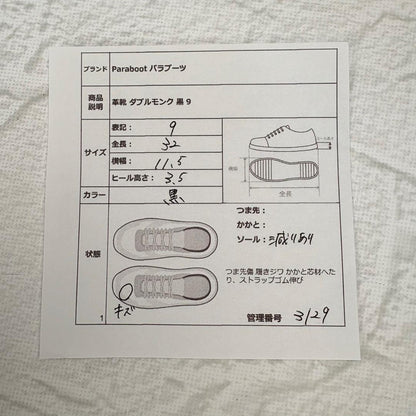 ブランド Paraboot パラブーツ
商品説明 革靴 ダブルモンク 黒 9
サイズ
表記： 9
全長： 32
横幅： 11.5
ヒール高さ： 3.5
ヒール高さ
横幅
全長
カラー 黒
状態
つま先：
かかと：
ソール： 減りあり
つま先傷 履きジワ かかと芯材へた
り、ストラップゴム伸び
キズ
1
管理番号 3129